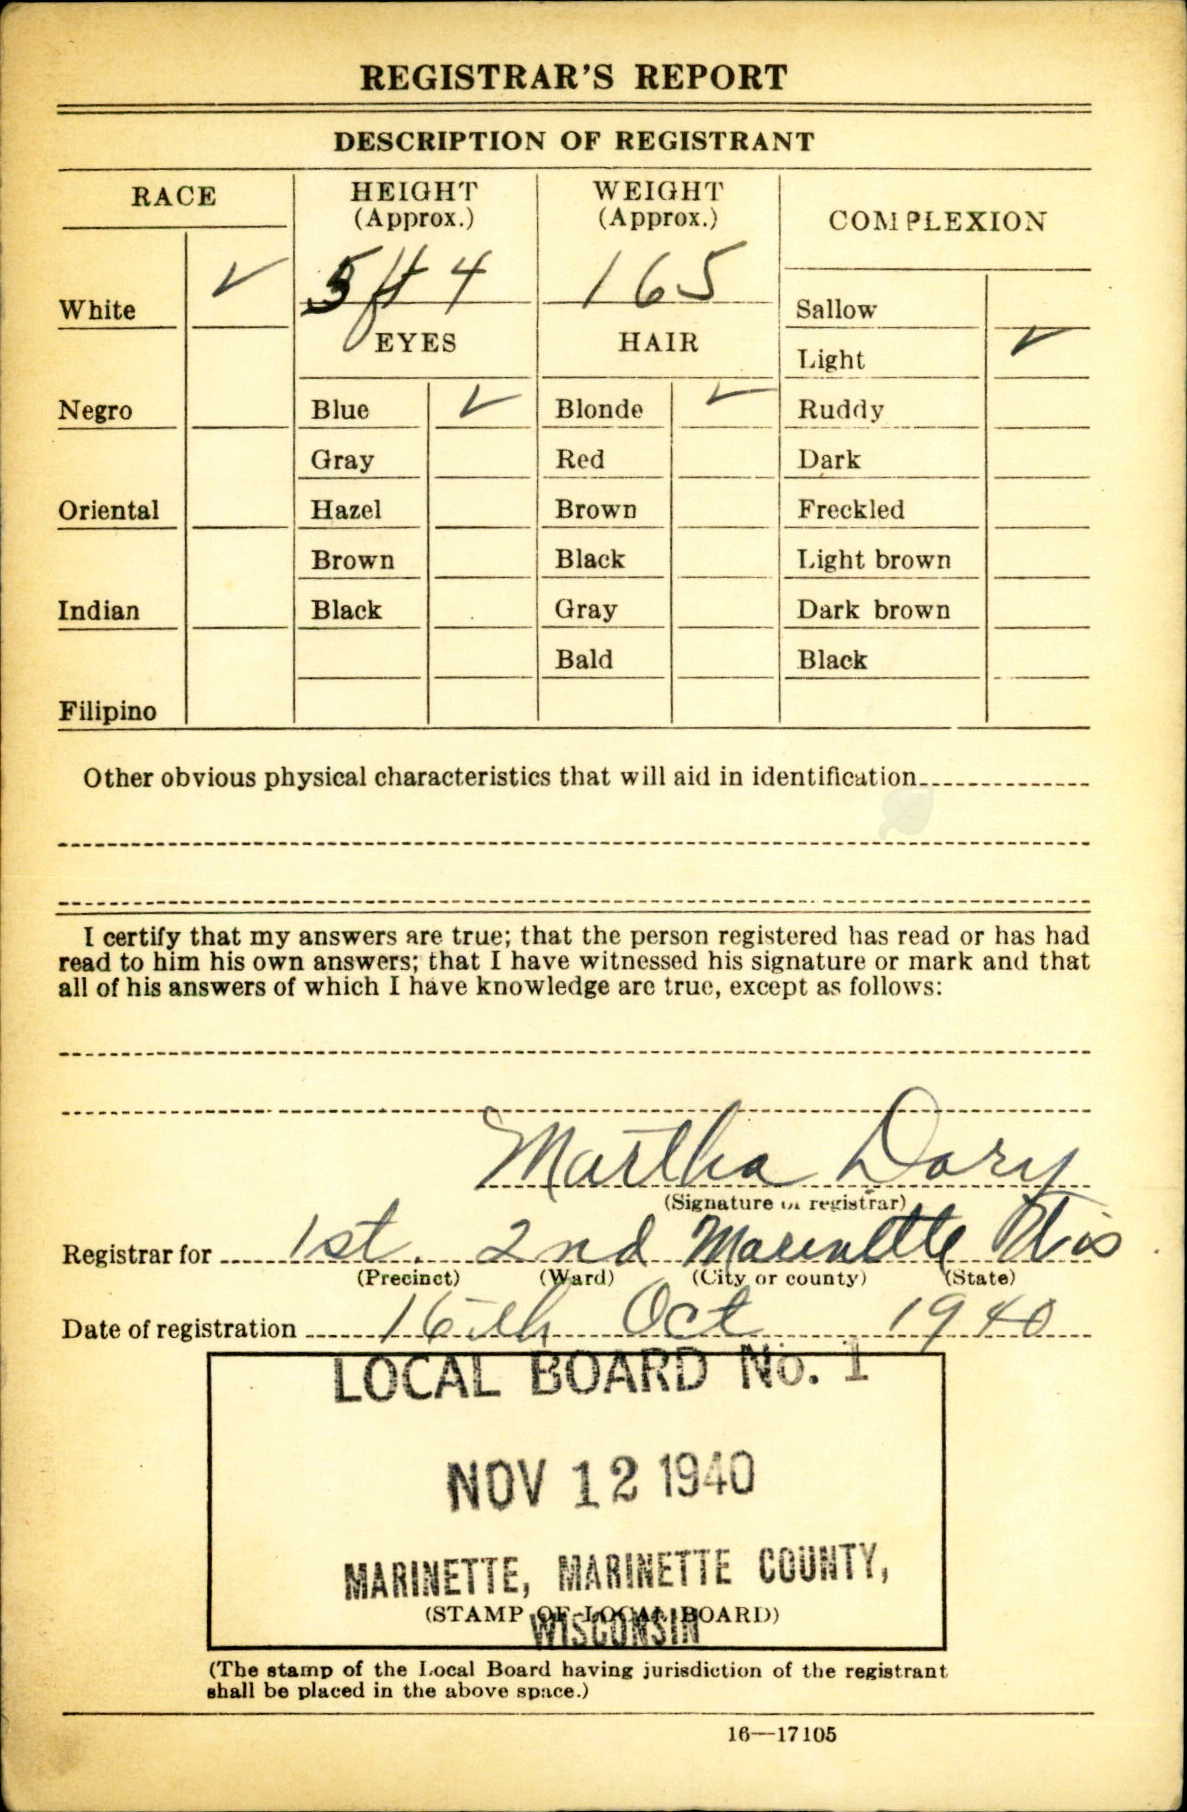 REGISTRAR'S REPORT
DESCRIPTION OF REGISTRANT
RACE
HEIGHT
(Approx.)
WEIGHT
(Approx.)
COMPLEXION
White ✓
5 ft 4
165
Sallow
EYES
HAIR
Light ✓
Negro
Blue ✓
Blonde ✓
Ruddy
Gray
Red
Dark
Oriental
Hazel
Brown
Freckled
Brown
Black
Light brown
Indian
Black
Gray
Dark brown
Bald
Black
Filipino
Other obvious physical characteristics that will aid in identification
I certify that my answers are true; that the person registered has read or has had
read to him his own answers; that I have witnessed his signature or mark and that
all of his answers of which I have knowledge are true, except as follows:
Martha Dory
(Signature of registrar)
Registrar for 1st. 2nd Marinette Wis
(Precinct) (Ward) (City or county) (State)
Date of registration 16th Oct 1940
LOCAL BOARD No. 1
NOV 12 1940
MARINETTE, MARINETTE COUNTY,
(STAMP OF LOCAL BOARD)
WISCONSIN
(The stamp of the Local Board having jurisdiction of the registrant
shall be placed in the above space.)
16—17105